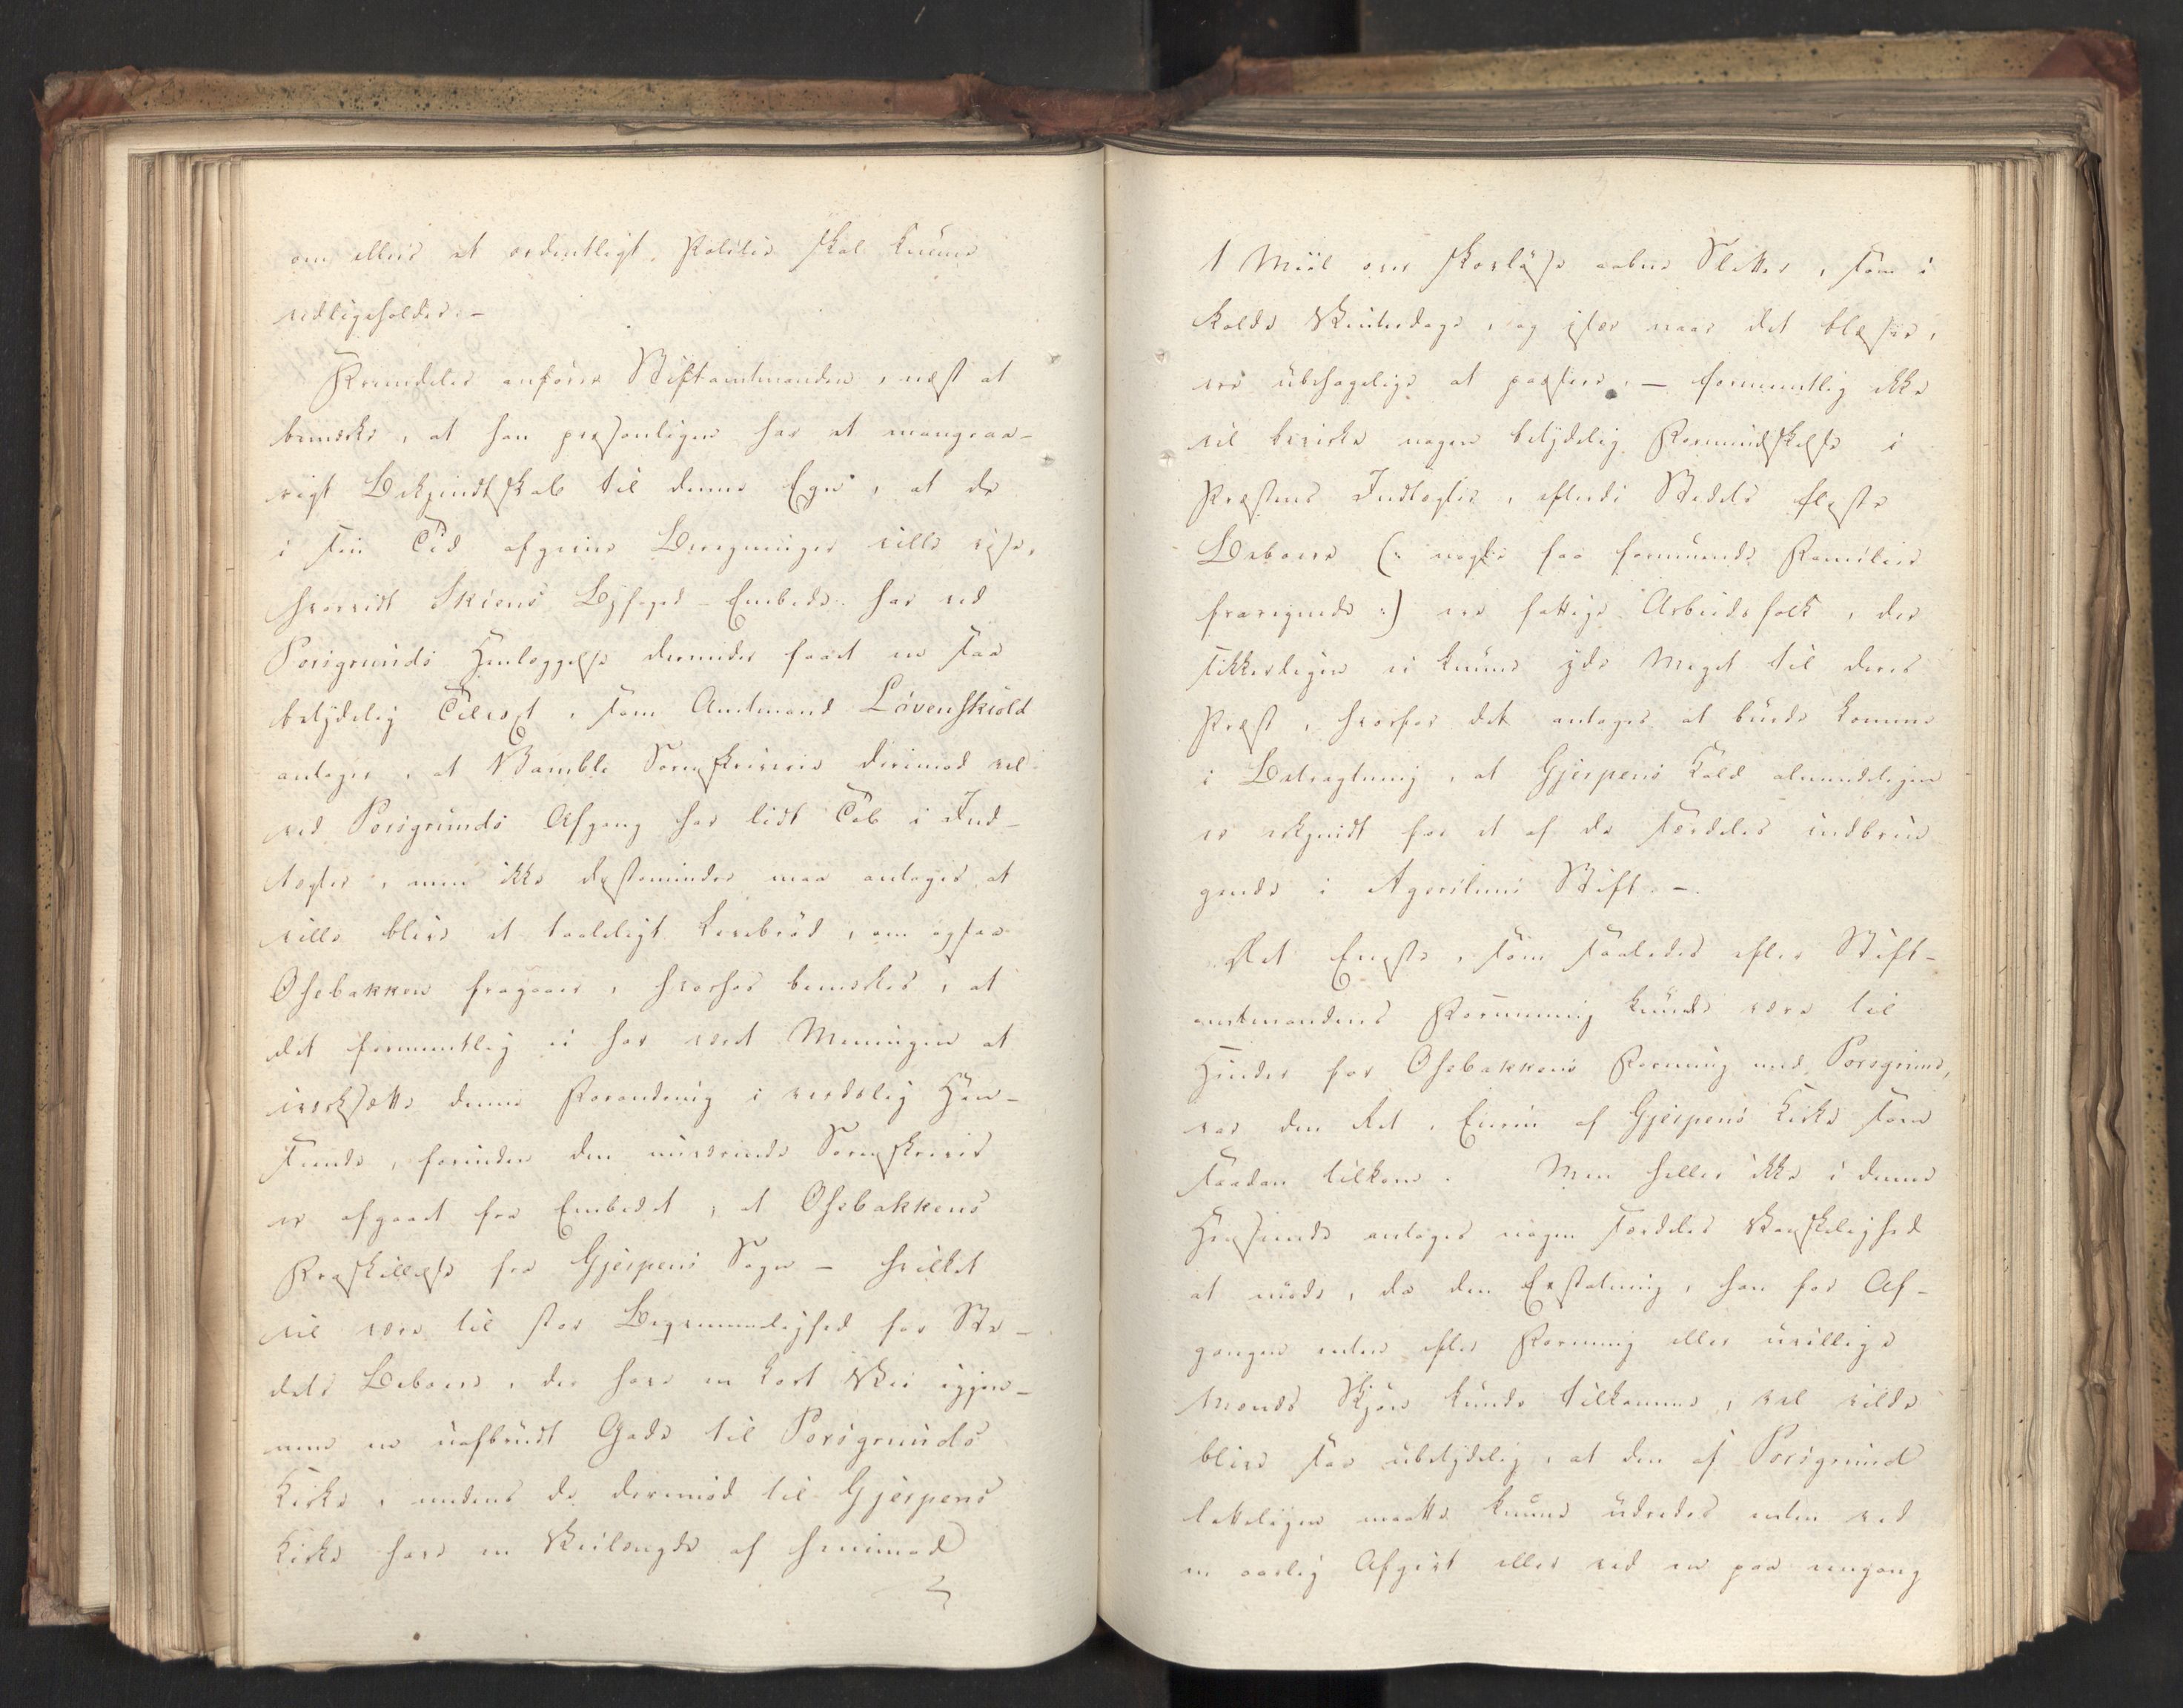 om ellers et ordentligt Politie skal kunne
vedligeholdes.-
Fremdeles anfører Stiftamtmanden, næst at
bemærke, at han personligen har et mangeaa-
rigt Bekjendtskab til denne Egn, at de
i sin Tid afgivne Beregninger ville vise,
hvorvidt Skiens Byfoged-Embede har ved
Porsgrunds Henlæggelse derunder faaet en saa
betydelig Tilvext, som Amtmand Løvenskiold
antager, at Bamble Sorenskriverie derimod vel
ved Porsgrunds Afgang har lidt Tab i Ind-
tægter, men ikke destominder maa antages at
ville blive et taaleligt Levebrød, om ogsaa
Osebakken fragaaer, hvorhos bemærkes, at
det formentlig ei har vært Meningen at
iværksætte denne Forandring i verdslig Hen-
seende, forinden den nuværende Sorenskriver
er afgaaet fra Embedet, at Osebakkens
Fraskillelse fra Gjerpens Sogn - hvilket
vil være til stor Beqvemmelighed for Ste-
dets Beboere, der have en kort Vei igjen-
nem en uafbrudt Gade til Porsgrunds
Kirke, medens de derimod til Gjerpens
Kirke have en Veilængde af henimod
1 Miil over skovløse aabne Sletter, som i
kolde Vinterdage, og især naar det blæser,
ere ubehagelige at passere, - formentlig ikke
vil bevirke nogen betydelig Formindskelse i
Præstens Indtægter, efterdi Stedets fleste
Beboere (: nogle faa formuende Familier
fraregnede :) ere fattige Arbeidsfolk, der
sikkerligen ei kunne yde Meget til deres
Præst, hvorfor det antages at burde komme
i Betragtning, at Gjerpens Kald almindeligen
er erkjendt for et af de særdeles indbrin
gende i Agershuus Stift. -.
Det Eneste, som saaledes efter Stift-
amtmandens Formening kunde være til
Hinder for Osebakkens Forening med Porsgrund,
var den Ret, Eieren af Gjerpens Kirke som
saadan tilkom. Men heller ikke i denne
Henseende antages nogen særdeles Vanskelighed
at møde, da den Erstatning, han for Af-
gangen enten efter Forening eller uvillige
Mænds Skjøn kunde tilkomme, vel vilde
blive saa ubetydelig, at den af Porsgrund
letteligen maatte kunne udredes enten ved
en aarlig Afgivt eller ved en paa eengang